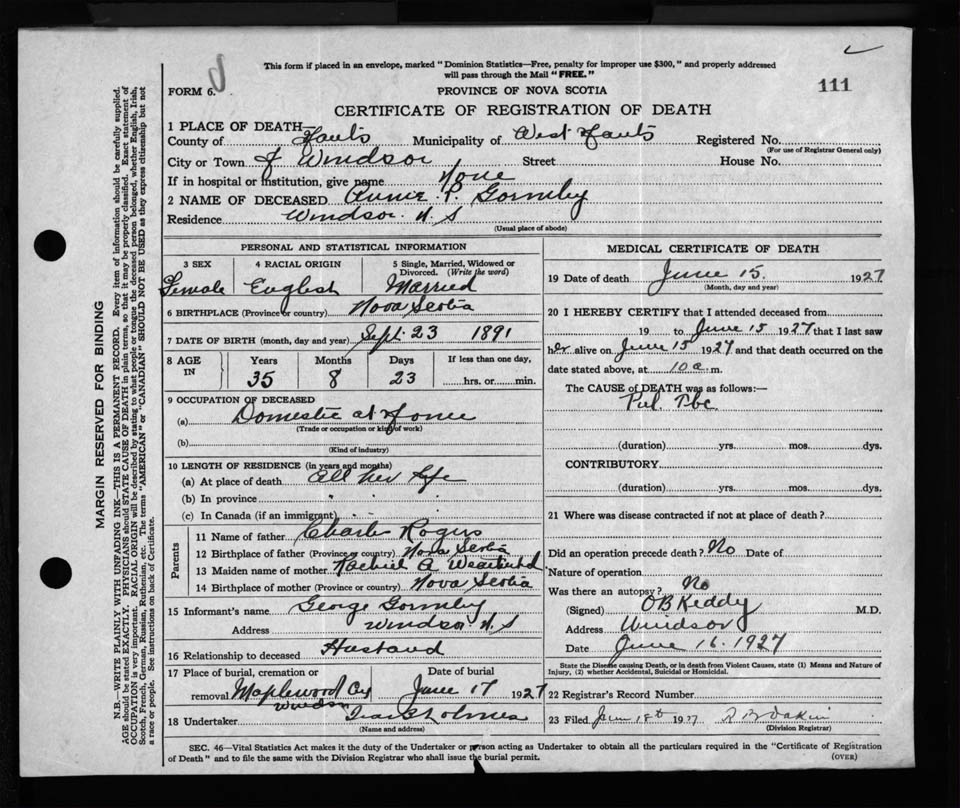 This form if placed in an envelope, marked "Dominion Statistics—Free, penalty for improper use $300," and properly addressed
will pass through the Mail "FREE."
FORM 6.
PROVINCE OF NOVA SCOTIA
111
CERTIFICATE OF REGISTRATION OF DEATH
1 PLACE OF DEATH—
County of Hants Municipality of West Hants Registered No.
(For use of Registrar General only)
City or Town of Windsor Street House No.
If in hospital or institution, give name None
2 NAME OF DECEASED Annie P. Gormley
Residence Windsor N.S
(Usual place of abode)
PERSONAL AND STATISTICAL INFORMATION
3 SEX Female
4 RACIAL ORIGIN English
5 Single, Married, Widowed or
Divorced. (Write the word)
Married
6 BIRTHPLACE (Province or country) Nova Scotia
7 DATE OF BIRTH (month, day and year) Sept. 23 1891
8 AGE IN
Years Months Days If less than one day,
35 8 23 hrs. or min.
9 OCCUPATION OF DECEASED
(a) Domestic at Home
(Trade or occupation or kind of work)
(b)
(Kind of industry)
10 LENGTH OF RESIDENCE (in years and months)
(a) At place of death All her life
(b) In province
(c) In Canada (if an immigrant)
Parents
11 Name of father Charles Rogers
12 Birthplace of father (Province or country) Nova Scotia
13 Maiden name of mother A.
14 Birthplace of mother (Province or country) Nova Scotia
15 Informant's name George Gormley
Address Windsor N.S
16 Relationship to deceased Husband
17 Place of burial, cremation or Date of burial
removal Maplewood Cy June 17 1927
Windsor
18 Undertaker Holmes
(Name and address)
MEDICAL CERTIFICATE OF DEATH
19 Date of death June 15. 1927
(Month, day and year)
20 I HEREBY CERTIFY that I attended deceased from
19 to June 15 1927 that I last saw
her alive on June 15 1927 and that death occurred on the
date stated above, at 10 a. m.
The CAUSE OF DEATH was as follows:—
Pul. Tbc
(duration) yrs. mos. dys.
CONTRIBUTORY
(duration) yrs. mos. dys.
21 Where was disease contracted if not at place of death?
Did an operation precede death? No Date of
Nature of operation
Was there an autopsy? No
(Signed) O B Keddy M.D.
Address Windsor
Date June 16. 1927
State the Disease causing Death, or in death from Violent Causes, state (1) Means and Nature of
Injury, (2) whether Accidental, Suicidal or Homicidal.
22 Registrar's Record Number
23 Filed June 18th 1927 R B Dakin
(Division Registrar)
SEC. 46—Vital Statistics Act makes it the duty of the Undertaker or person acting as Undertaker to obtain all the particulars required in the "Certificate of Registration
of Death" and to file the same with the Division Registrar who shall issue the burial permit.
(OVER)
MARGIN RESERVED FOR BINDING
N.B.—WRITE PLAINLY WITH UNFADING INK—THIS IS A PERMANENT RECORD. Every item of information should be carefully supplied.
AGE should be stated EXACTLY. PHYSICIANS should STATE CAUSE OF DEATH in plain terms, so that it may be properly classified. Exact statement of
OCCUPATION is very important. RACIAL ORIGIN will be described by stating to what people or tongue the deceased person belonged, whether English, Irish,
Scotch, French, German, Russian, Ruthenian, etc. The terms "AMERICAN" or "CANADIAN" SHOULD NOT BE USED as they express citizenship but not
a race or people. See instructions on back of Certificate.